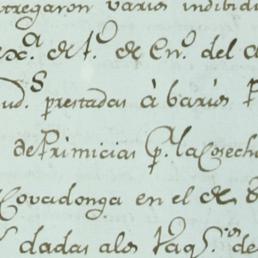 ntregaron varios indibidu
exᵃ. de f.º de En.º del a
ud.ˢ prestadas à barios P
de Primicias p.ʳ la Cosech
Covadonga en el de
dadas a los